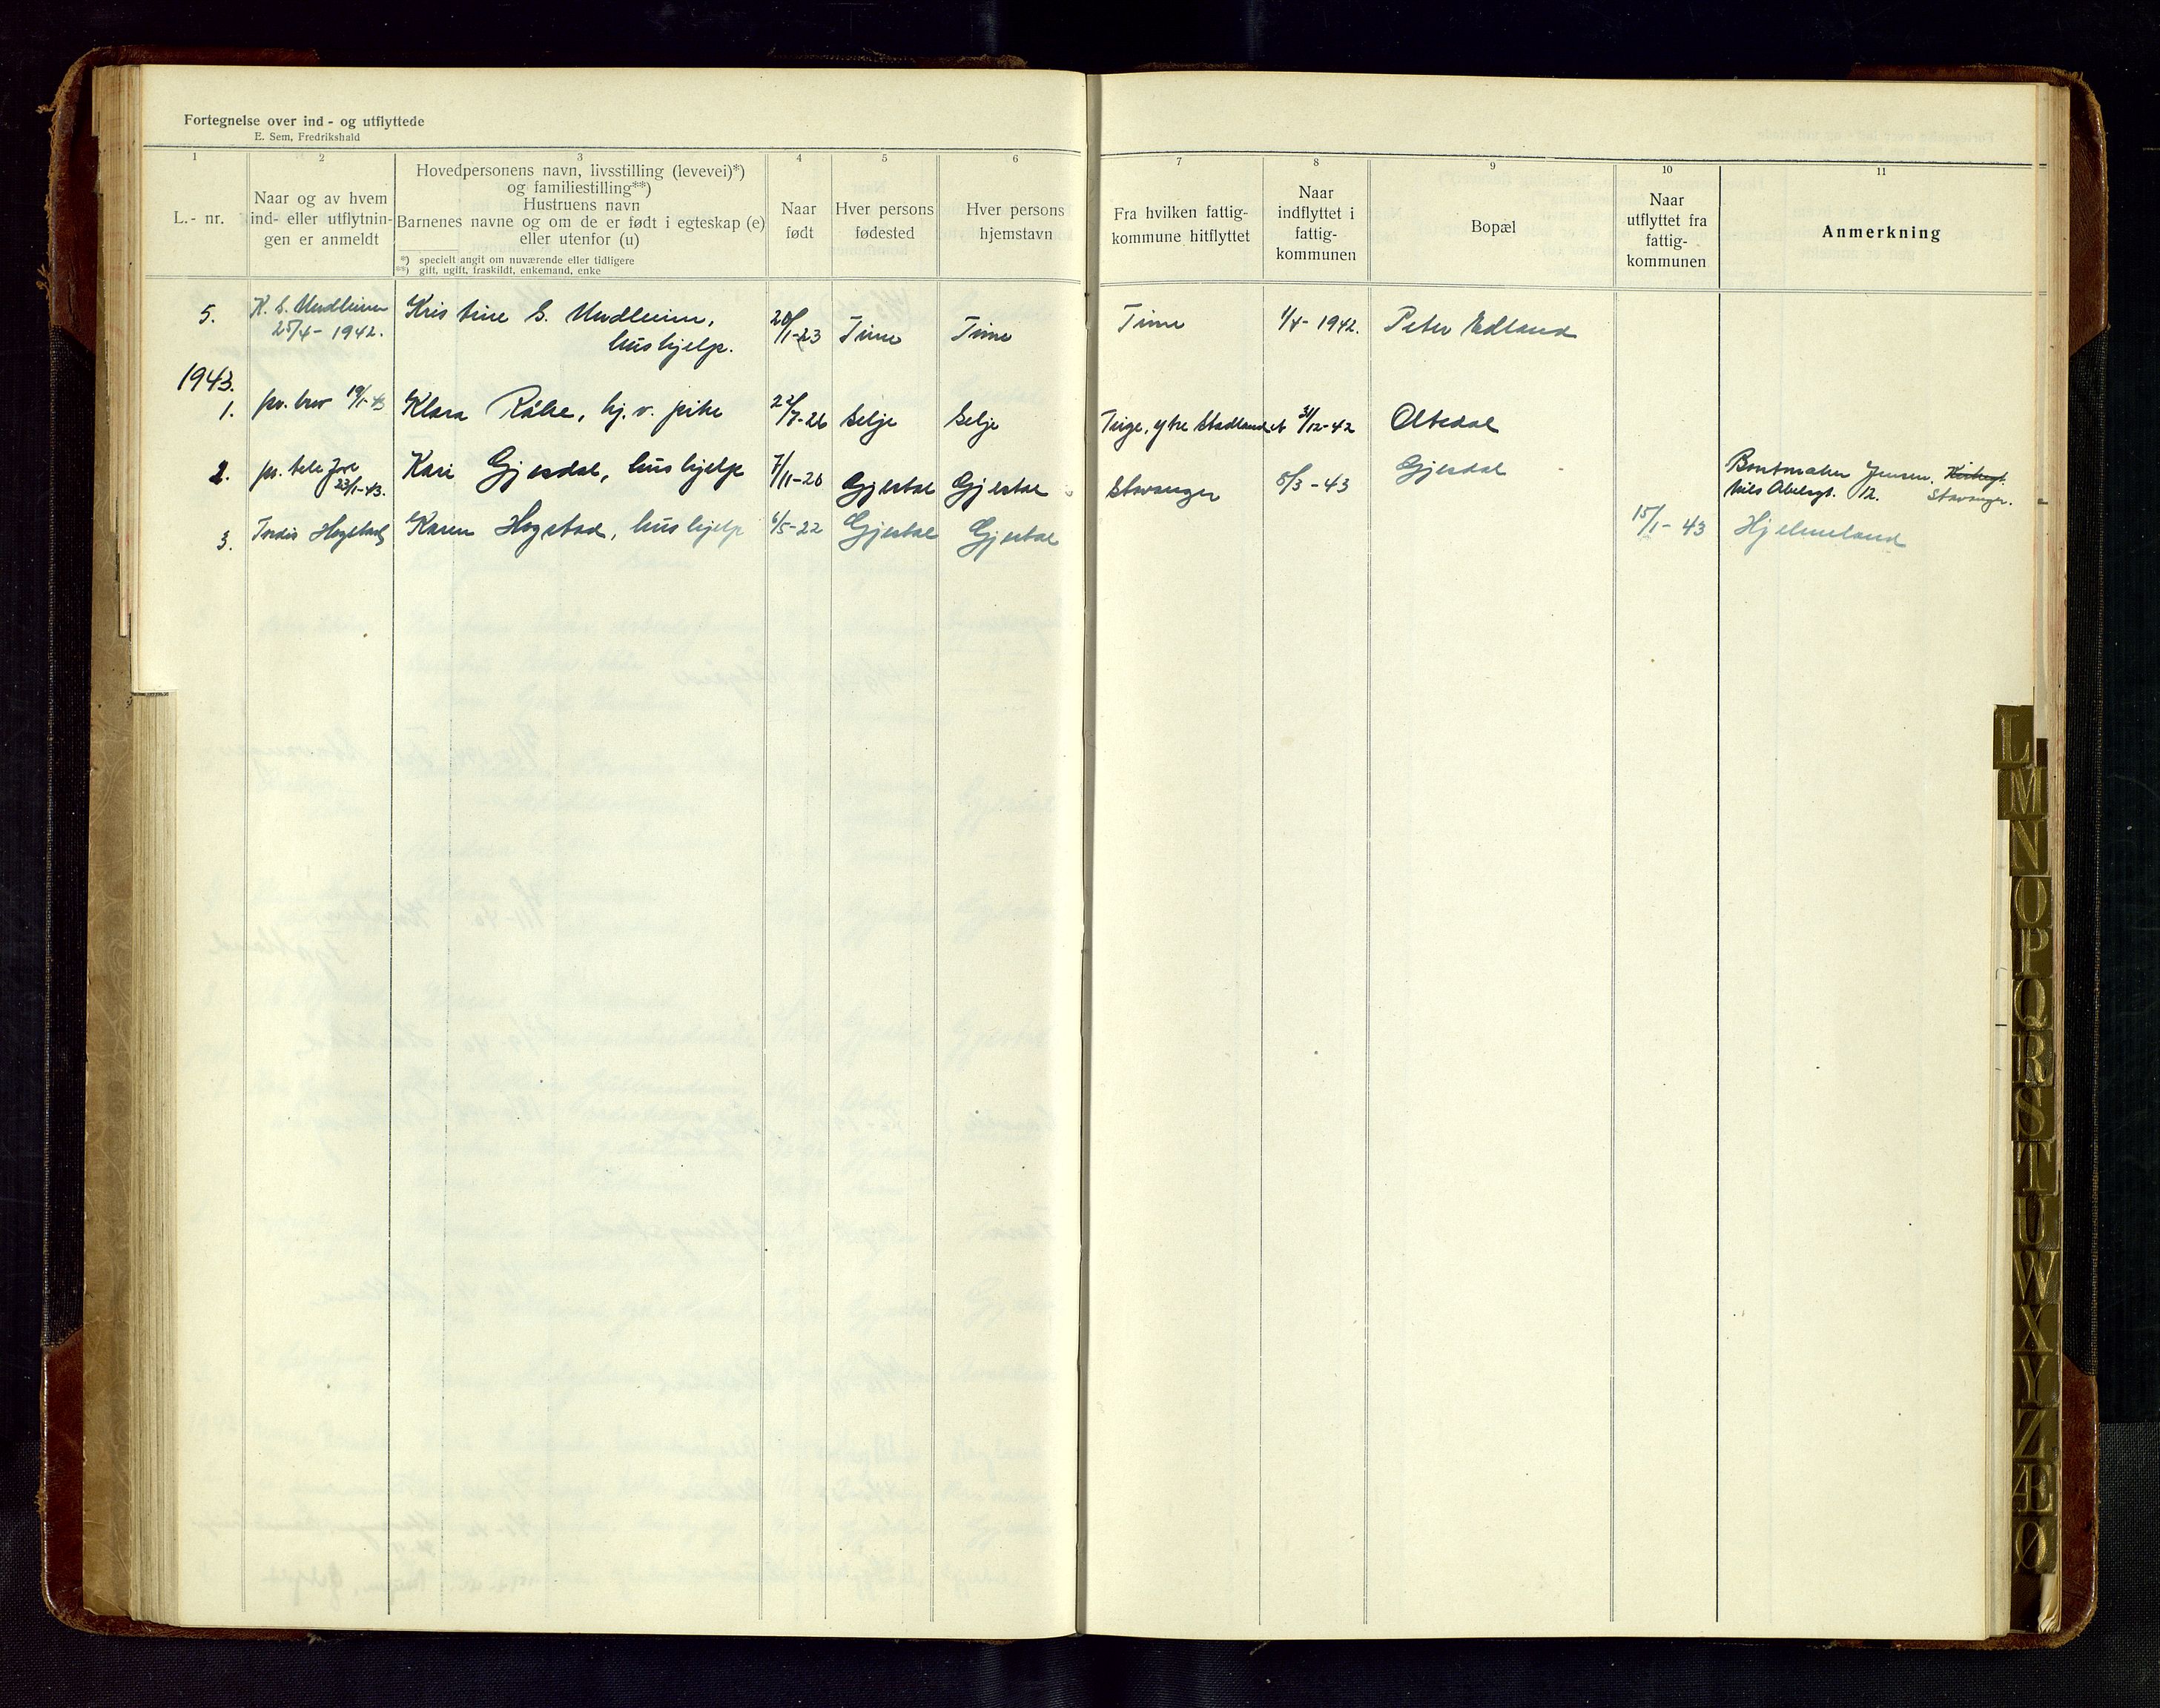 Fortegnelse over ind - og utflyttede
E. Sem, Fredrikshald
1 2 3 4 5 6 7 8 9 10 11
L.- nr.
Naar og av hvem
ind- eller utflytnin-
gen er anmeldt
Hovedpersonens navn, livsstilling (levevei)*)
og familiestilling**)
Hustruens navn
Barnenes navne og om de er født i egteskap (e)
eller utenfor (u)
*) specielt angit om nuværende eller tidligere
**) gift, ugift, fraskildt, enkemand, enke
Naar
født
Hver persons
fødested
Hver persons
hjemstavn
Fra hvilken fattig-
kommune hitflyttet
Naar
indflyttet i
fattig-
kommunen
Bopæl
Naar
utflyttet fra
fattig-
kommunen
Anmerkning
5. K. S. Undheim Kristine S. Undheim, 20/1-23 Time Time Time 1/4- 1942. Peter Edland
25/4- 1942. hushjelp.
1943.
1. pr. brev 19/1-43 Klara Råke, hj. v. pike 22/7-26 Selje Selje ytre Stadlandet 31/12-42 Oltedal
2. pr. tele Kari Gjesdal, hushjelp 7/11-20 Gjestal Gjestal Stavanger 8/3-43 Gjesdal Buntmaker Jensen.
23/1-43. Nils Abelsgt. 12. Stavanger.
3. Tordis Hogstad Karen Hogstad, hushjelp 6/5-22 Gjestal Gjestal 15/1- 43 Hjelmeland
L
M
N
O
P
Q
R
S
T
U
W
X
Y
Z
Æ
Ø